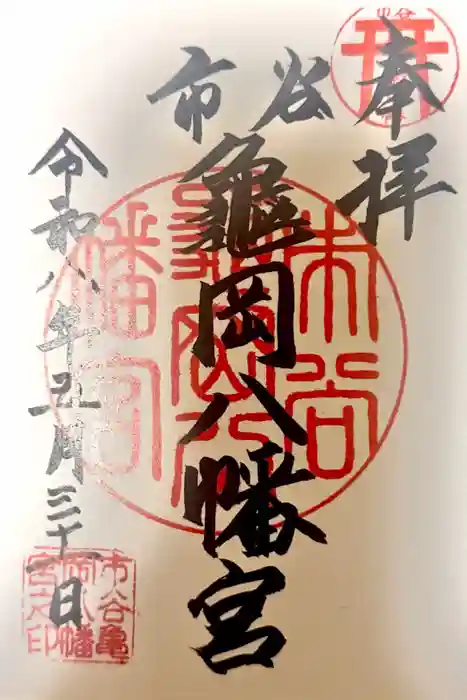 奉拝
市谷
龜岡八幡宮
令和八年五月三十一日
市谷
龜岡八
幡宮
市谷亀
岡八幡
宮之印